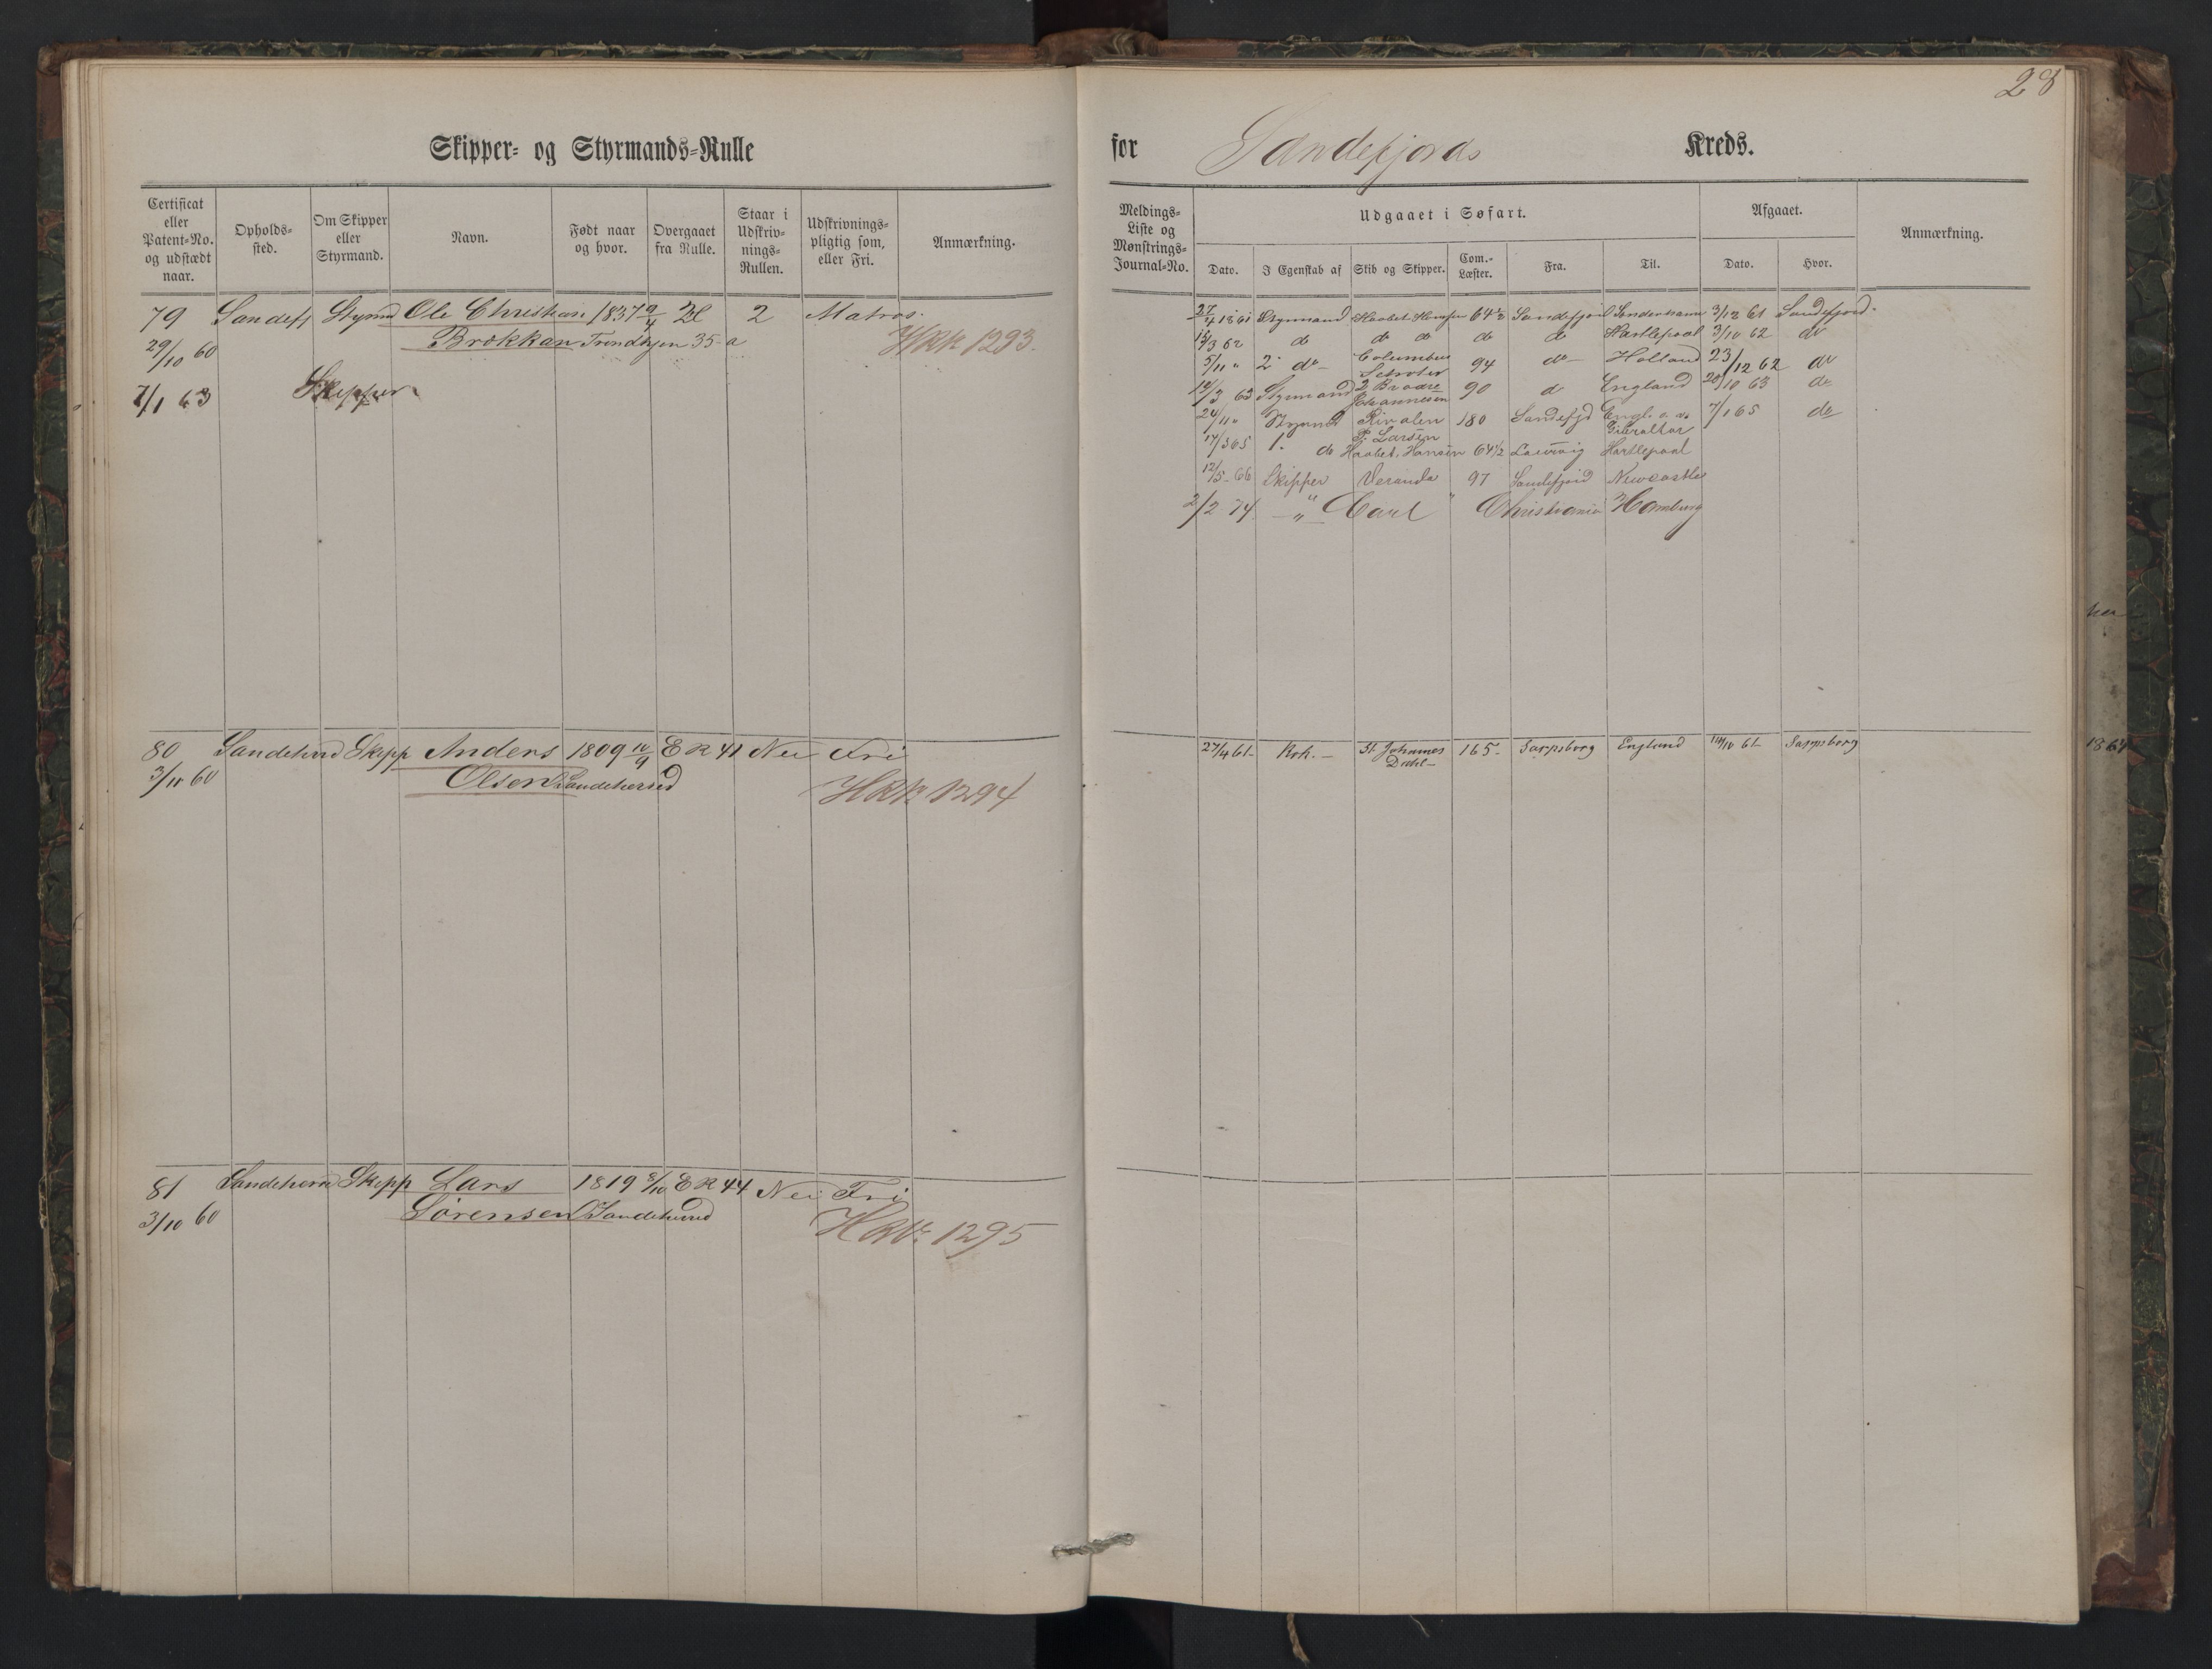 28
Skipper- og Styrmands-Rulle for Sandefjords Kreds.
Certifikat eller Patent-No. og udstædt naar.
Opholds-sted.
Om Skipper eller Styrmand.
Navn.
Født naar og hvor.
Overgaaet fra Rulle.
Staar i Udskriv-nings-Rullen.
Udskrivnings-pligtig som, eller Fri.
Anmærkning.
Meldings-Liste og Mønstrings-Journal-No.
Udgaaet i Søfart.
Dato.
I Egenskab af
Skib og Skipper.
Com.-Læster.
Fra.
Til.
Afgaaet.
Dato.
Hvor.
Anmærkning.
79 Sandefj Styrmd Ole Christian 1837 9/4 2 Matros.
29/10 60 Brokkan Trondhjen 35 a HRK 1293.
7/1 63 Skipper
27/4 1861 Styrmand Haabet Hansen 64½ Sandefjord 3/12 61 Sandefjord.
13/3 62 do do do do do Hartlepool 3/10 62 do
5/11 " 2 do Columbus 94 do Holland 23/12 62 do
14/3 63 Styrmand 2 Brødre Johannesen 90 d England 20/10 63 do
24/11 " Styrmd Rivalen P. Larsen 180 Sandefjd Engl. Gibraltar 7/1 65 do
17/3 65 1. do Haabet. Hansen 64½ Laurvig Hartlepool
12/5 66 Skipper Veranda 97 Sandefjord Newcastle
2/2 74 " Carl " Christiania Hamburg
80 Sandeherred Skipp Anders 1809 E R 41 Nei Fri
3/10 60 Olsen Sandeherred HRK 1294
27/4 61 Kok. St Johannes Dahl 165 Sarpsborg England 14/10 61 Sarpsborg
81 Sandeherred Skipp Lars 1819 8/10 E R 44 Nei Fri
3/10 60 Sørensen Sandeherred HRK 1295